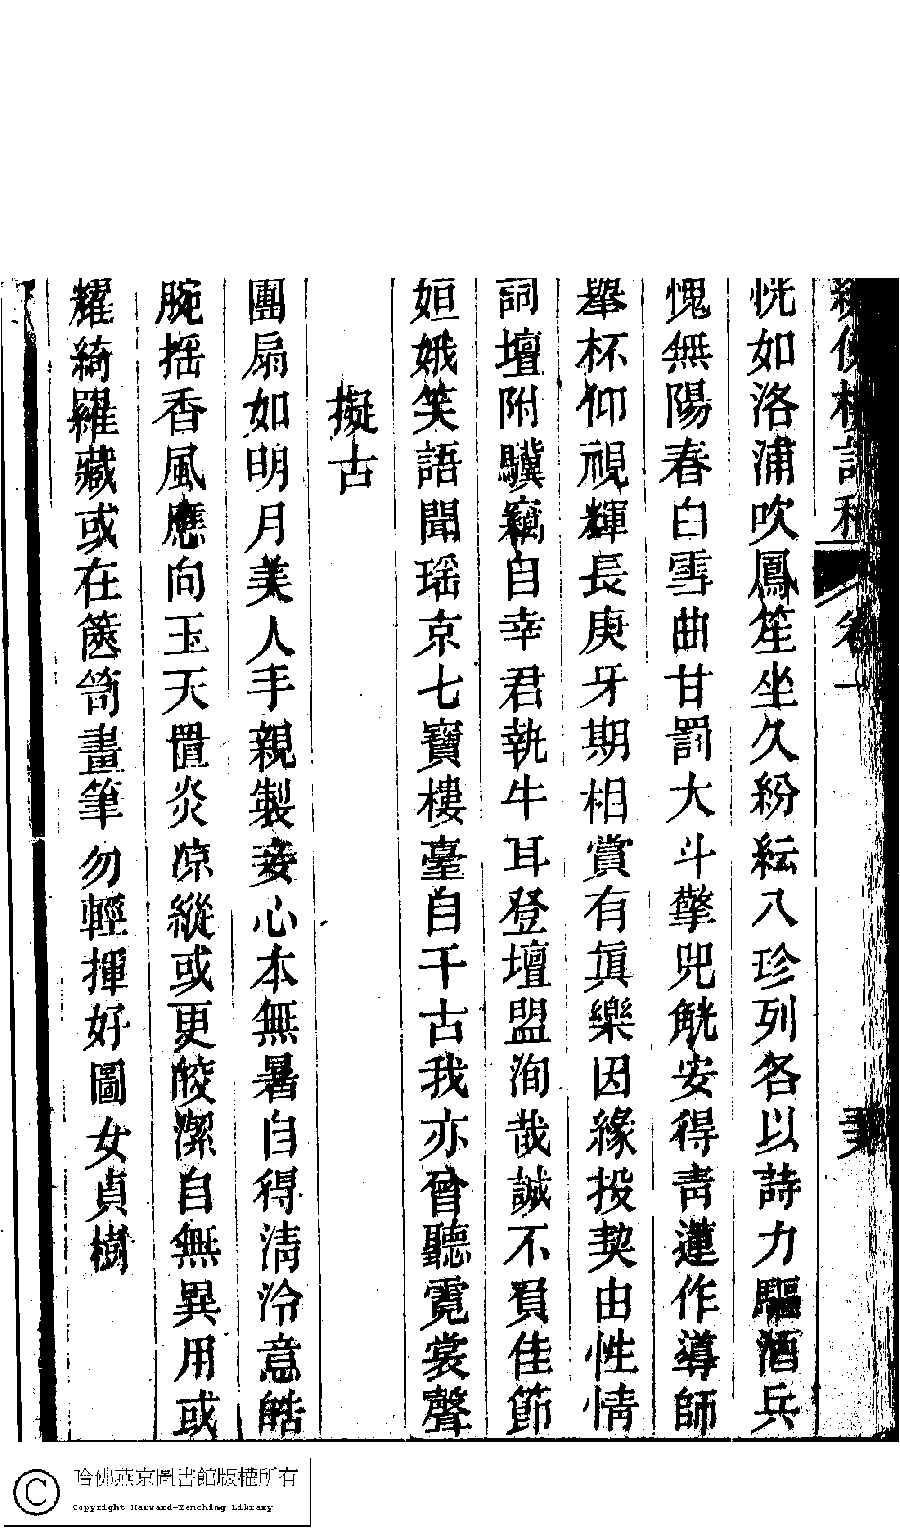 繡佛樓詩稿 卷一
恍如洛浦吹鳳笙坐久紛紜八珍列各以詩力驅酒兵
愧無陽春白雪曲甘罰大斗擎兕觥安得青蓮作導師
舉杯仰視輝長庚牙期相賞有眞樂因緣投契由性情
詞壇附驥竊自幸君執牛耳登壇盟洵哉誠不負佳節
姮娥笑語聞瑶京七寶樓臺自千古我亦曾聽霓裳聲
擬古
團扇如明月美人手親製妾心本無暑自得清泠意皓
腕揺香風應向玉天置炎凉縱或更皎潔自無異用或
耀綺羅藏或在篋笥畫筆勿輕揮好圖女貞樹
哈佛燕京圖書館版權所有
Copyright Harvard-Yenching Library